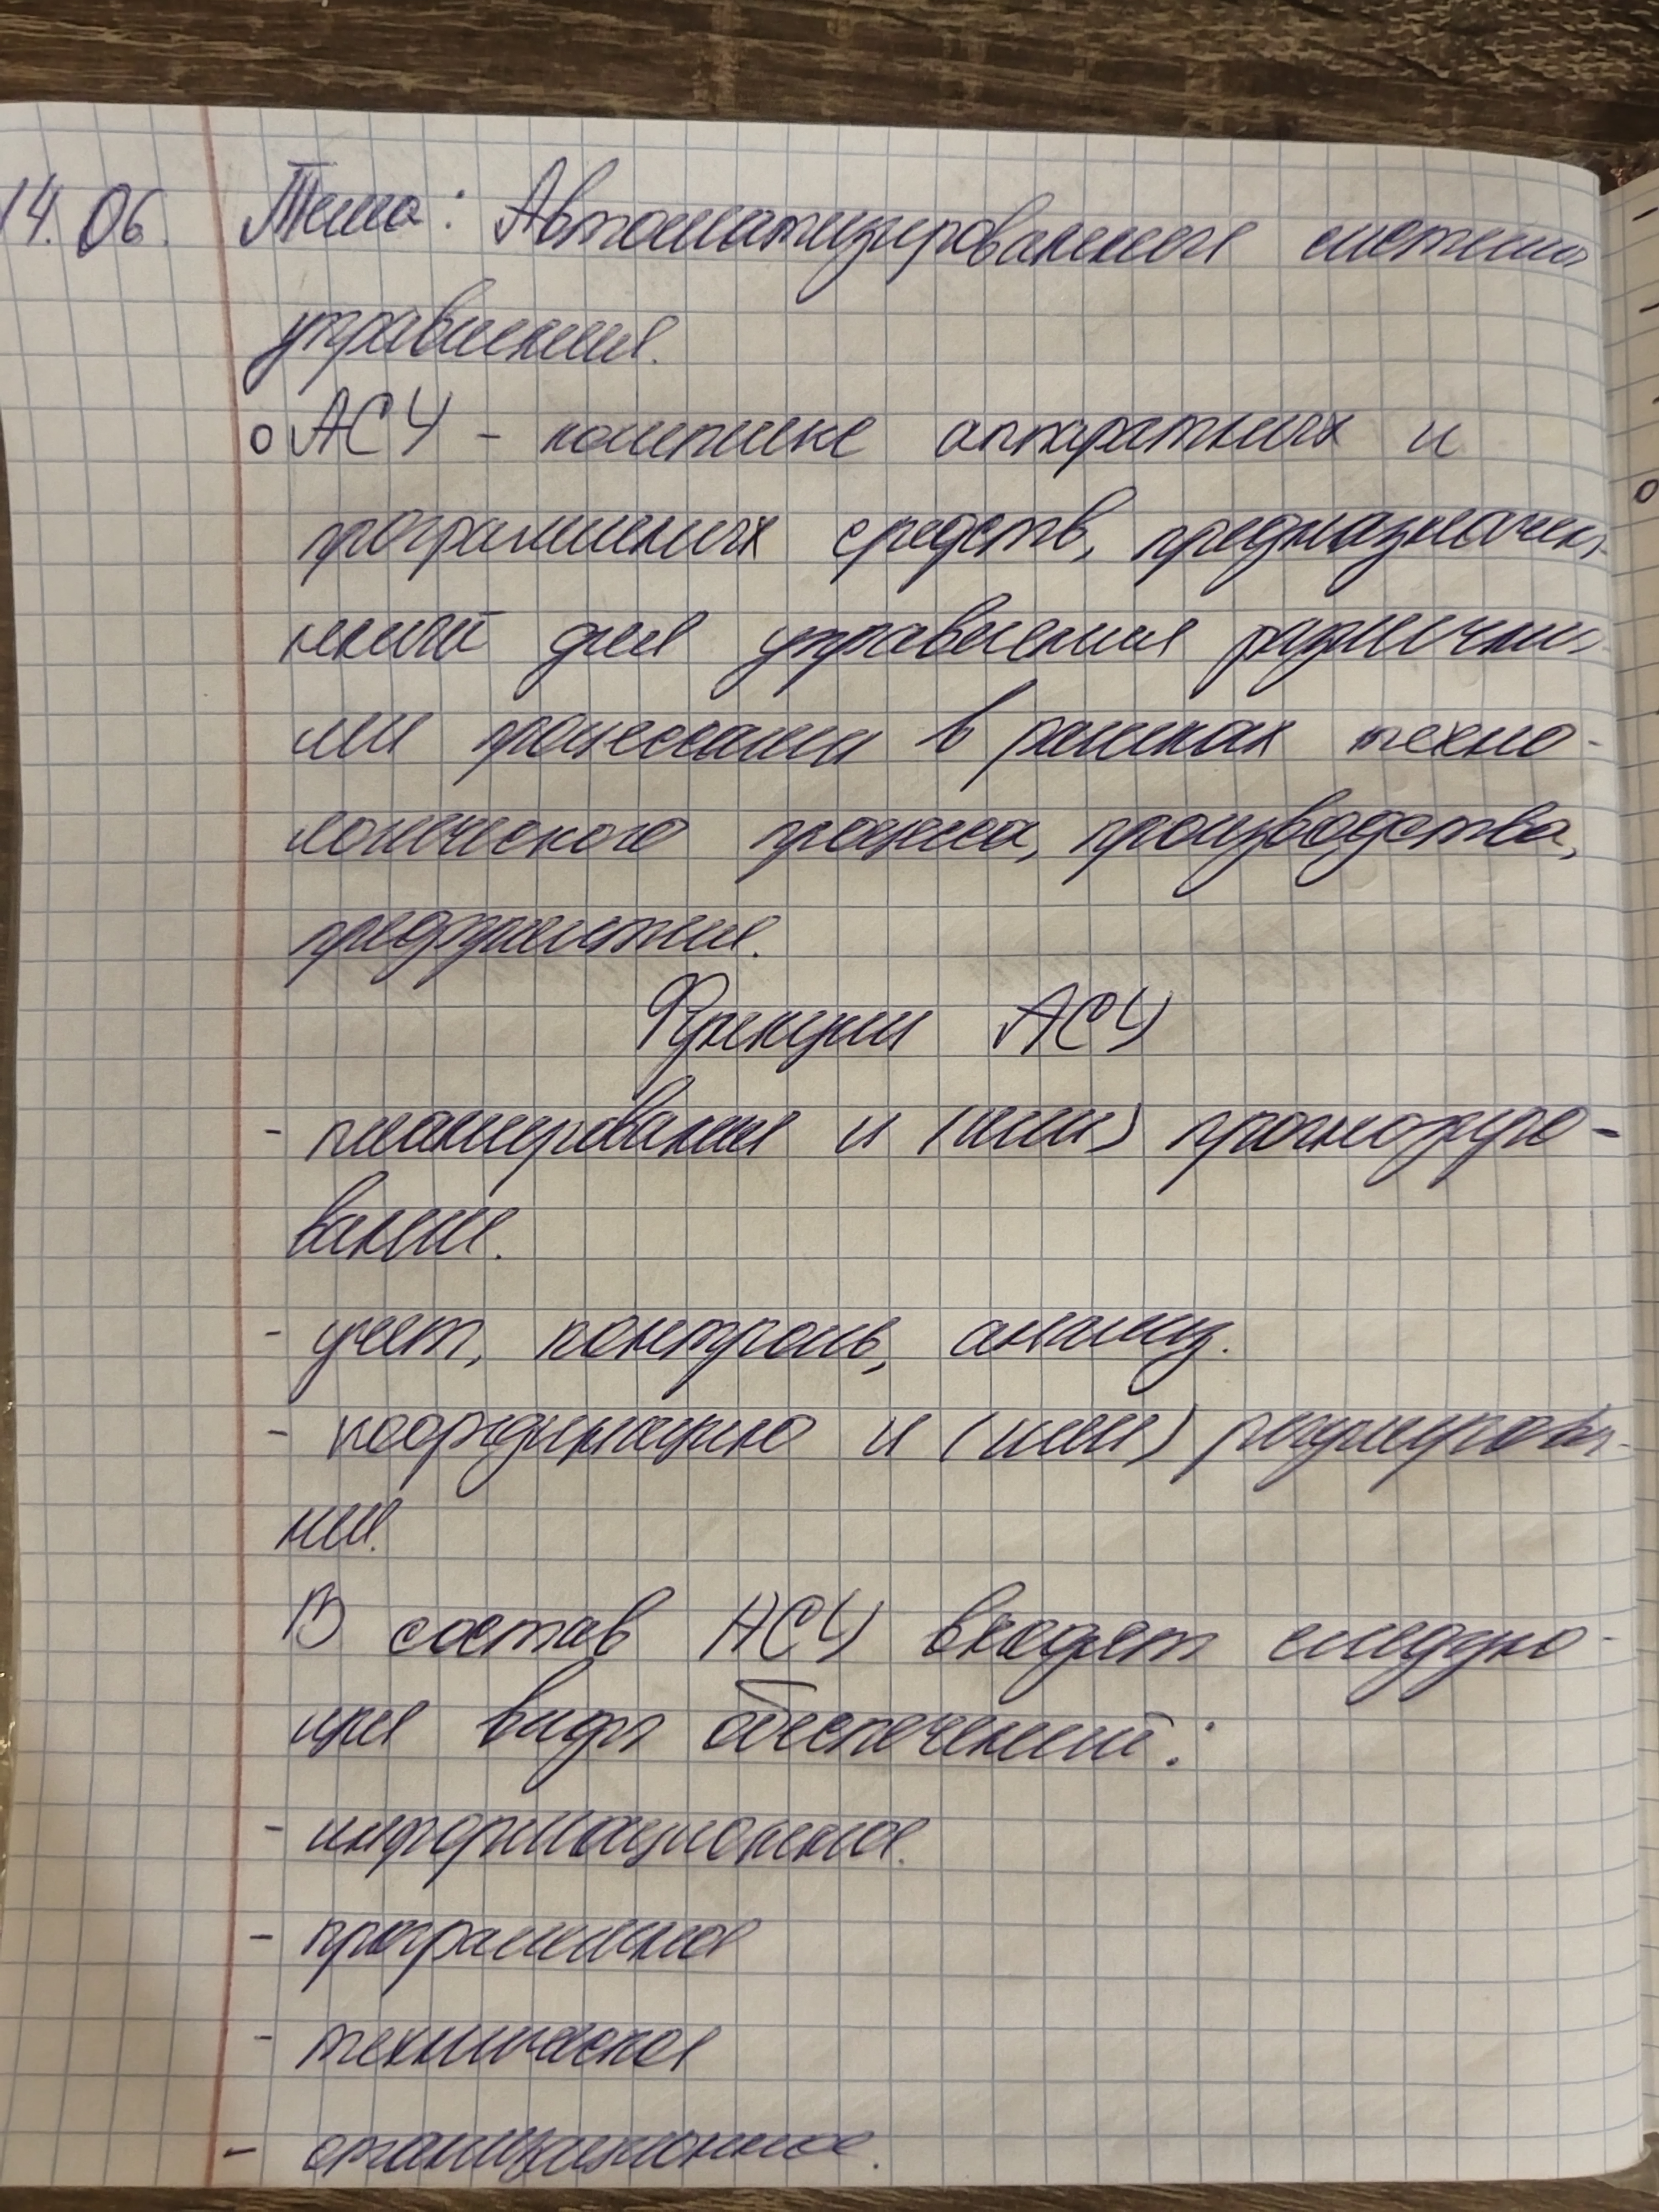 14.06. Тема: Автоматизированная система
управления.
АСУ - комплекс аппаратных и
программных средств, предназначен-
ный для управления различны-
ми процессами в рамках техно-
логического процесса, производства,
предприятия.
Функции АСУ
- планирования и (или) прогнозиро-
вание.
- учет, контроль, анализ.
- координацию и (или) регулирова-
ния.
В состав АСУ входят следую-
щие виды обеспечений:
- информационное.
- программное
- техническое
- организационное.